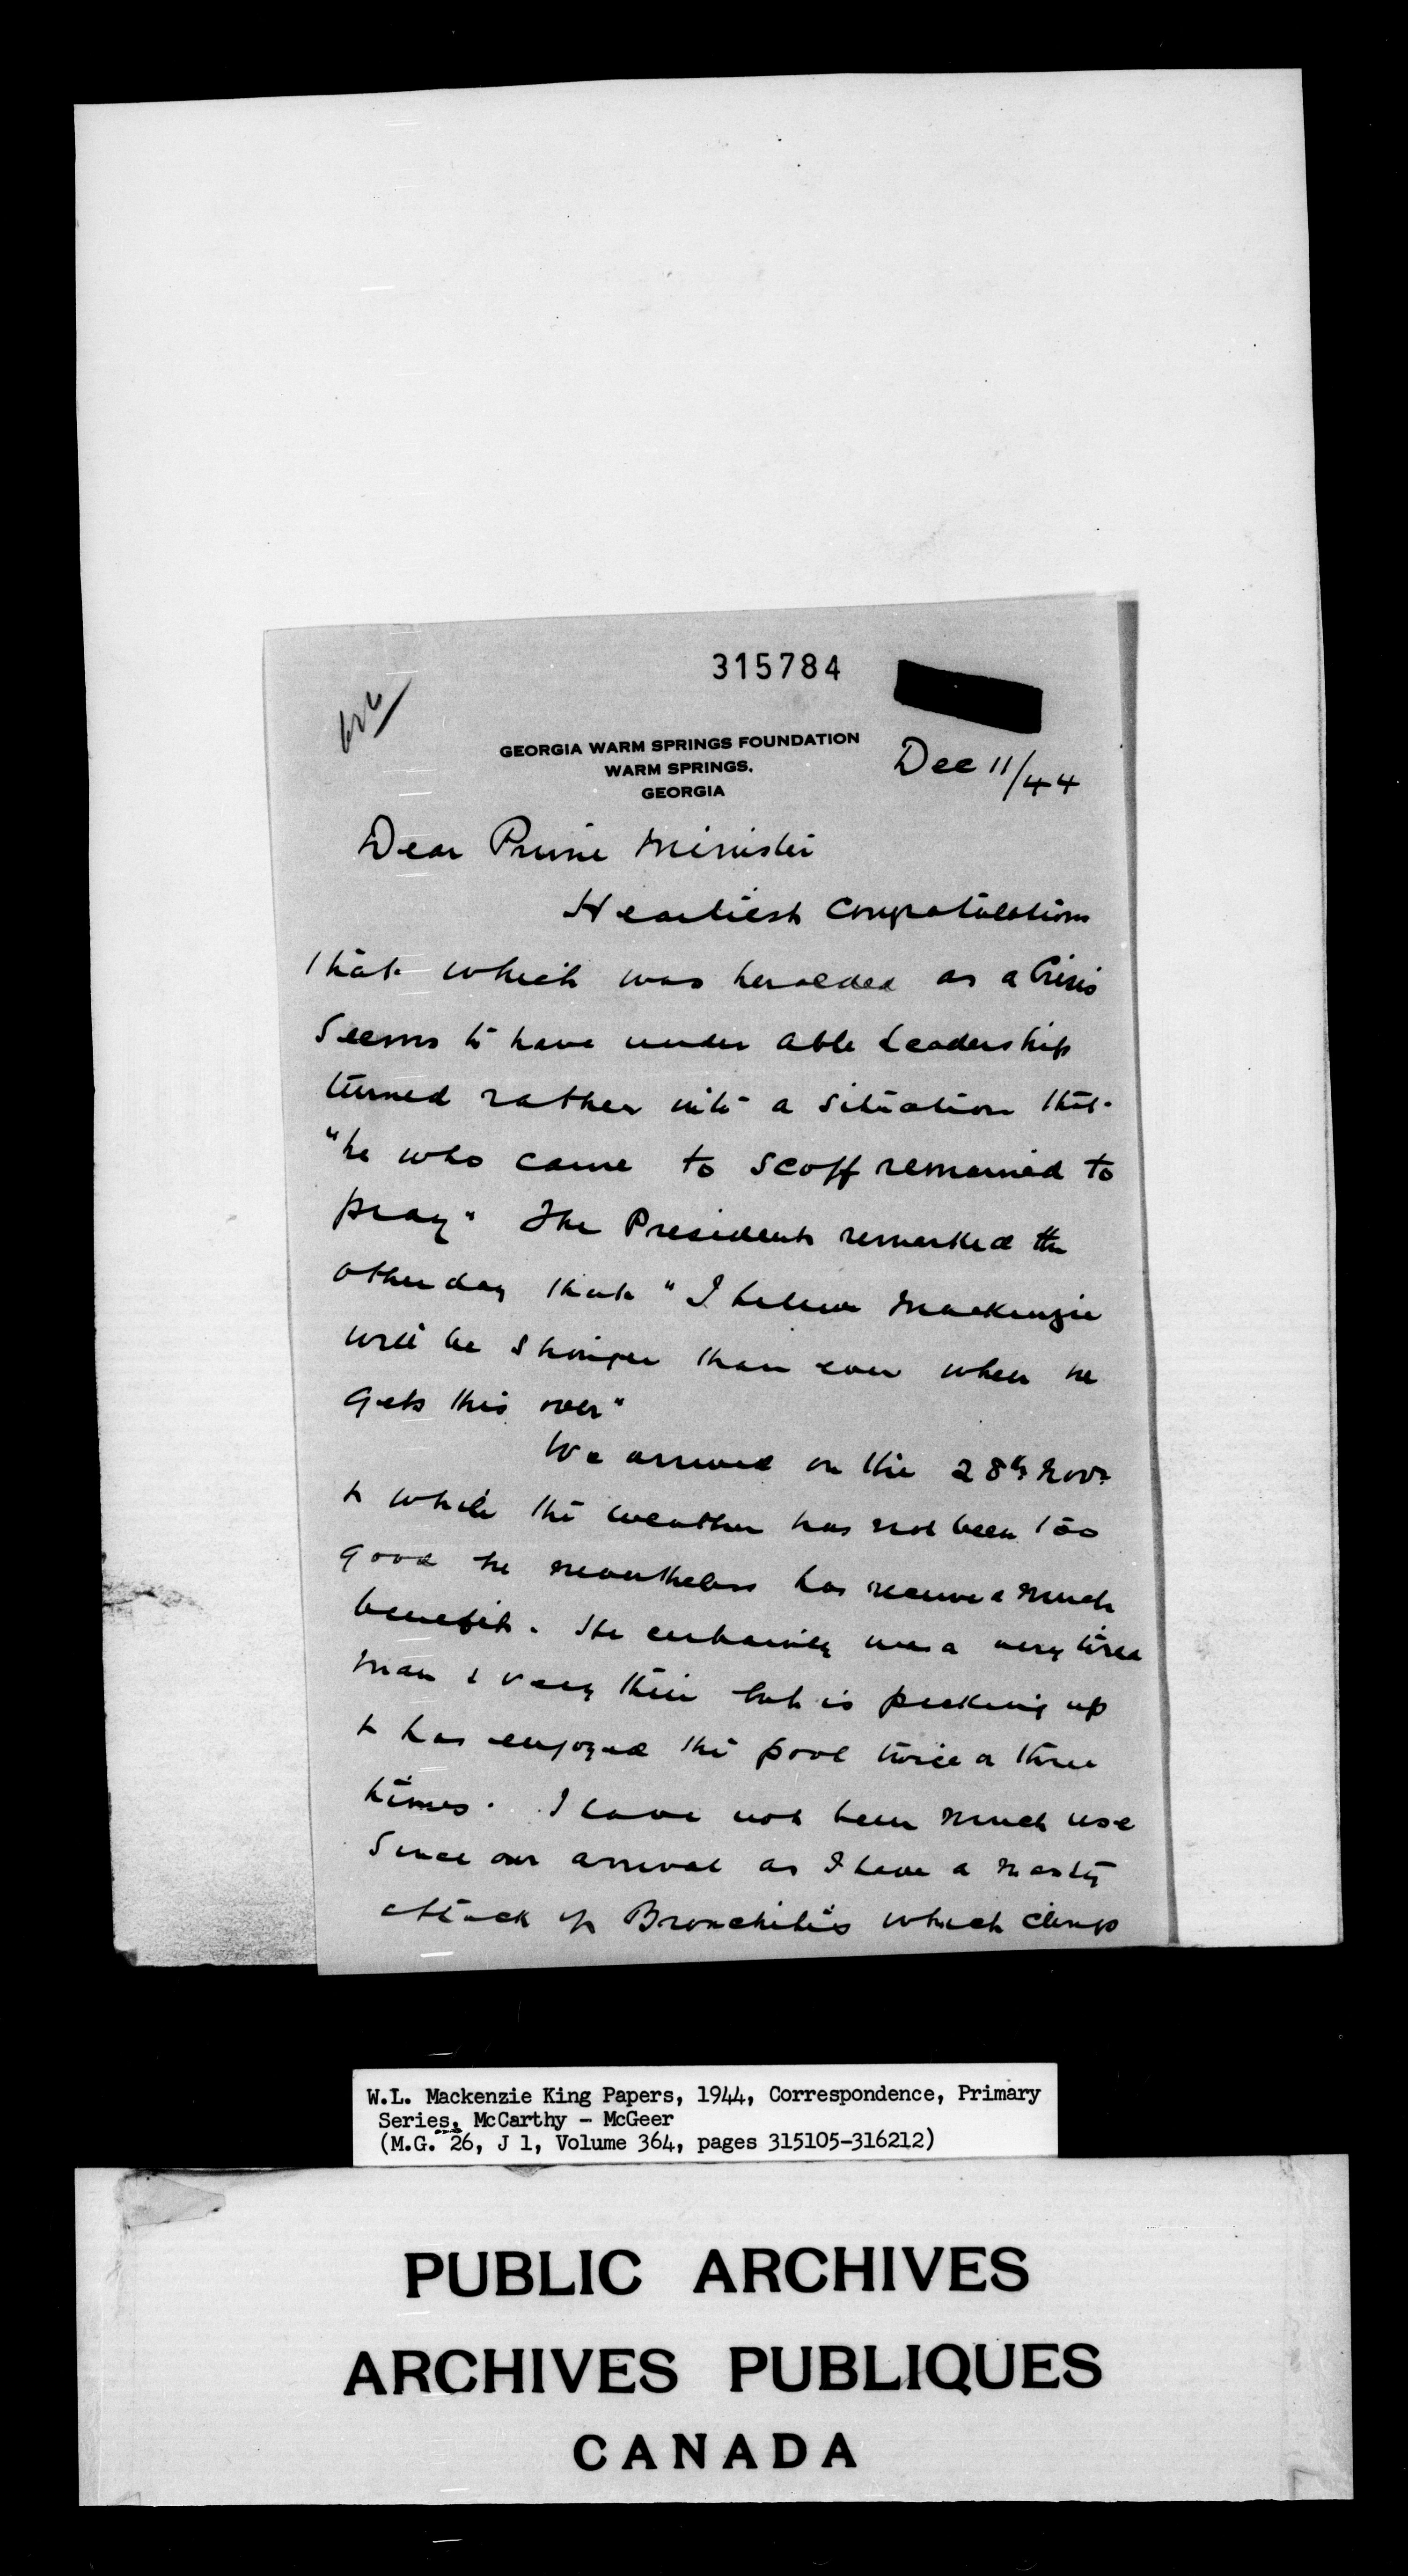 315784
GEORGIA WARM SPRINGS FOUNDATION
WARM SPRINGS,
GEORGIA
Dec 11/44
Dear Prime Minister
Heartiest Congratulations
that which was heralded as a Crisis
seems to have under able Leadership
turned rather into a situation that
"he who came to scoff remained to
pray" The President remarked the
other day that "I believe Mackenzie
will be stronger than ever when he
gets this over"
We arrived on the 28th Novr
& while the weather has not been too
good he nevertheless has received much
benefit. He certainly was a very tired
man & very thin but is picking up
& has enjoyed the pool twice or three
times. I have not been much use
since our arrival as I have a nasty
attack of Bronchitis which clings
W.L. Mackenzie King Papers, 1944, Correspondence, Primary
Series, McCarthy - McGeer
(M.G. 26, J 1, Volume 364, pages 315105-316212)
PUBLIC ARCHIVES
ARCHIVES PUBLIQUES
CANADA